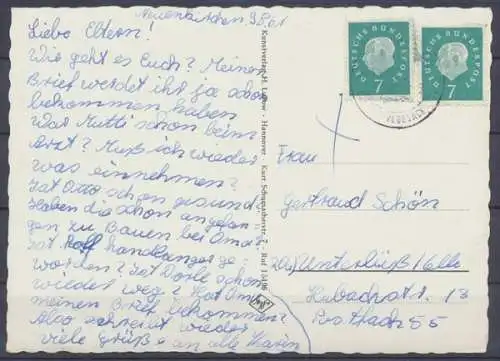 Neuenkirchen 9.8.61
Liebe Eltern!
Wie geht es Euch? Meinen
Brief werdet ihr ja schon
bekommen haben
War Mutti schon beim
Arzt? Muß ich wieder
was einnehmen?
Hat Otto schon gesund
Haben die schon angefan-
gen zu Bauen bei Oma
hat Rolf handlanger ge-
worden? Hat Dorle schon
wieder weg? Hat Oma
meinen Brief bekommen?
Also schreibt wieder
viele grüße an alle Karin
Kunstverlag H. Lukow - Hannover - Kurt Schumacherstr. 7 - Ruf
DEUTSCHE BUNDESPOST
7
DEUTSCHE BUNDESPOST
7
Frau
Gertraud Schön
Unterlüß / Celle
Hubachstr. 13
Postfach 55